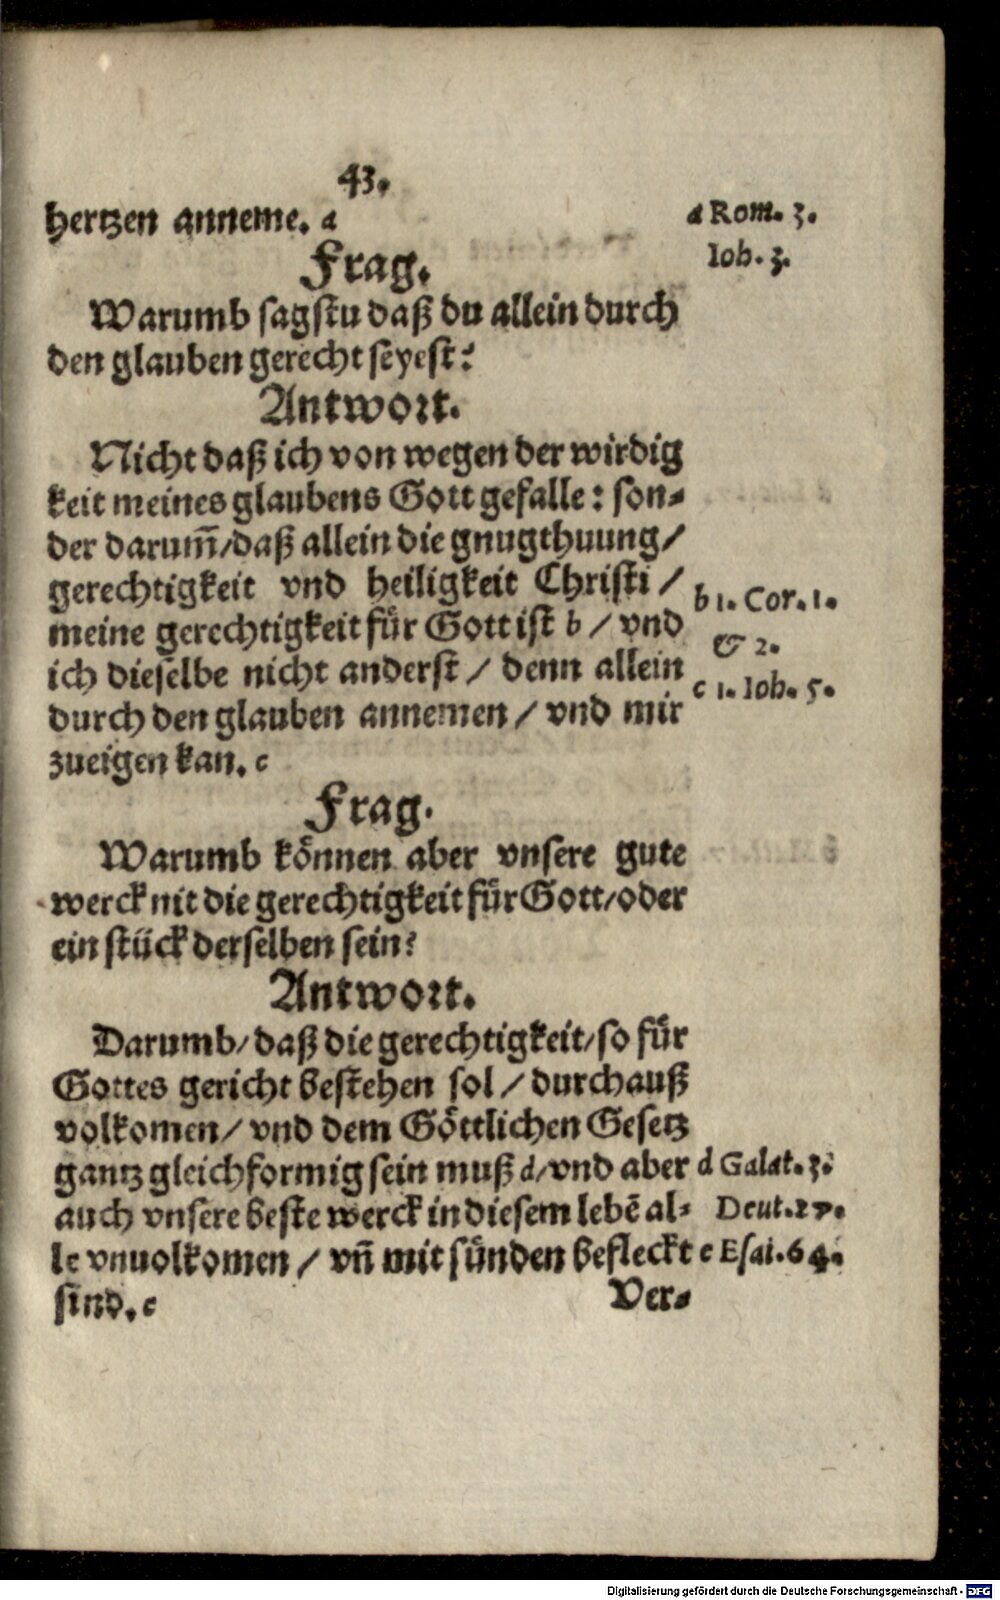 43.
hertzen anneme. a
a Rom. 3.
Ioh. 3.
Frag.
Warumb sagstu daß du allein durch
den glauben gerecht seyest?
Antwort.
Nicht daß ich von wegen der wirdig
keit meines glaubens Gott gefalle: son-
der darum̃/daß allein die gnugthuung/
gerechtigkeit vnd heiligkeit Christi /
meine gerechtigkeit für Gott ist b / vnd
ich dieselbe nicht anderst / denn allein
durch den glauben annemen / vnd mir
zueigen kan. c
b 1. Cor. 1.
& 2.
c 1. Ioh. 5.
Frag.
Warumb können aber vnsere gute
werck nit die gerechtigkeit für Gott/oder
ein stück derselben sein?
Antwort.
Darumb/daß die gerechtigkeit/so für
Gottes gericht bestehen sol / durchauß
volkomen/ vnd dem Göttlichen Gesetz
gantz gleichformig sein muß d/vnd aber
auch vnsere beste werck in diesem lebē al-
le vnuolkomen / vñ mit sünden befleckt
sind. e
d Galat. 3.
Deut. 27.
e Esai. 64.
Ver-
Digitalisierung gefördert durch die Deutsche Forschungsgemeinschaft - DFG